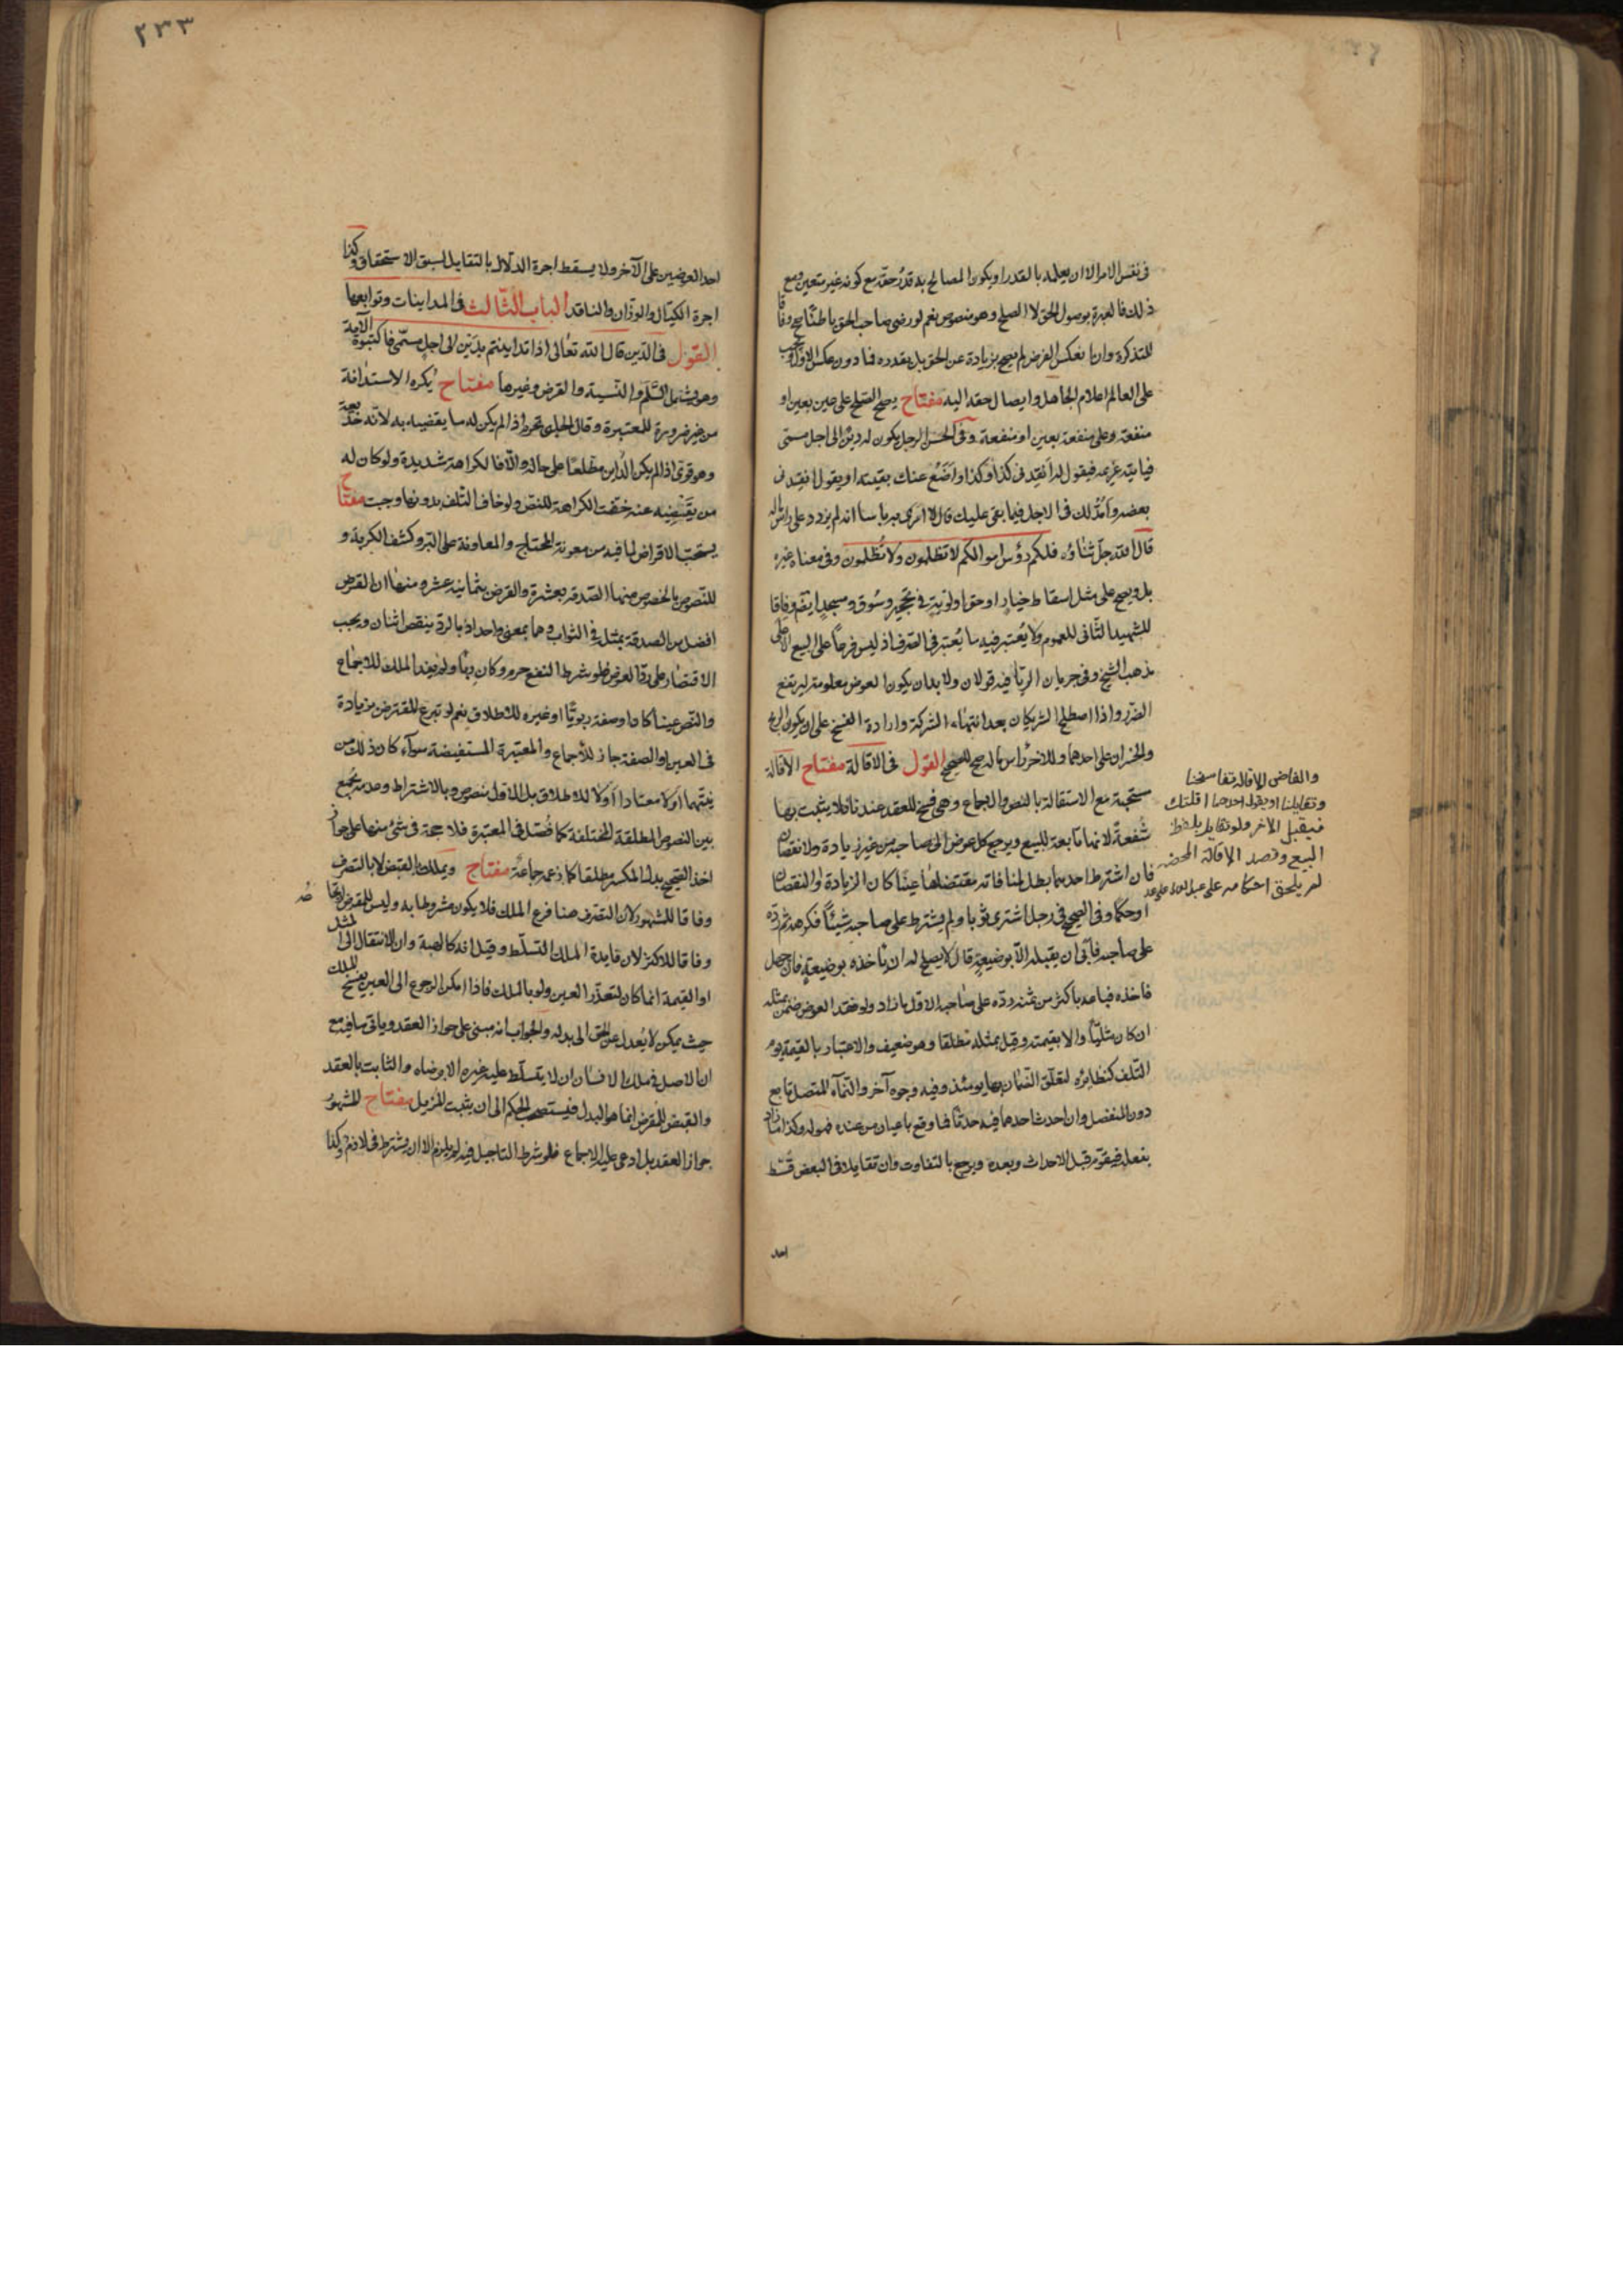 فى نفس الامر الا ان يعلمه بالقدر او يكون المصالح به قدر حقه مع كونه غير متعين ومع
ذلك فالعبرة بوصول الحق لا الصلح وهو منصوص نعم لو رضى صاحب الحق باطنًا صح وفاقا
للتذكرة وان انعكس الفرض لم يصح بزيادة عن الحق بل بقدره فما دون عكس الاول ويجب
على العالم اعلام الجاهل وايصال حقه اليه مفتاح يصح الصلح على عين بعين او
منفعة وعلى منفعة بعين او منفعة وفى الحسن الرجل يكون له دين الى اجل مسمى
فياتيه غريمه فيقول له انقد فى كذا وكذا واضع عنك بقيته او يقول انقد فى
بعضه وامد لك فى الاجل فيما بقى عليك قال لا ارى به باسا انه لم يزدد على راس ماله
قال الله جل ثناؤه فلكم رؤس اموالكم لا تظلمون ولا تُظلمون وفى معناه غيره
بل ويصح على مثل اسقاط خيار او حق اولوية فى تحجير وسوق ومسجد ايضم وفاقا
للشهيد الثانى للعموم ولا يُعتبر فيه ما يُعتبر فى الصرف اذ ليس فرعًا على البيع الا على
مذهب الشيخ وفى جريان الربا فيه قولان ولا بد ان يكون العوض معلومة ليرتفع
الضرر واذا اصطلح الشريكان بعد انتهاء الشركة وارادة الفسخ على ان يكون الربح
والخسران على احدهما وللاخر راس ماله صح للصحيح القول فى الاقالة مفتاح الاقالة
مستحبة مع الاستقالة بالنص والاجماع وهى فسخ للعقد عندنا فلا يثبت بها
شُفعة لانها تابعة للبيع ويرجع كل عوض الى صاحبه من غير زيادة ولا نقصان
فان اشترط احدهما بطل لمنافاته مقتضاها عينًا كان الزيادة او النقصان
او حكما وفى الصحيح فى رجل اشترى ثوبا ولم يشترط على صاحبه شيئًا فكرهه ثم رده
على صاحبه فابى ان يقبله الا بوضيعة قال لا يصلح له ان ياخذه بوضيعة فان جهل
فاخذه فباعه باكثر من ثمنه رده على صاحبه الاول ما زاد ولو فقد العوض ضمن بمثله
ان كان مثليًا والا بقيمته وقيل بمثله مطلقا وهو ضعيف والاعتبار بالقيمة يوم
التلف كنظايره لتعلق الضمان بها يومئذ وفيه وجوه آخر والنماء المتصل تابع
دون المنفصل وان احدث احدهما فيه حدثا فما وقع باعيان من عنده فهو له وكذا ما زاد
بفعله فيقوم قبل الاحداث وبعده ويرجع بالتفاوت وان تقايلا فى البعض قُسّط
احد
والفاض الاقالة تفاسخنا
وتقايلنا او يقول احدهما اقلتك
فيقبل الآخر ولو تقايلا بلفظ
البيع وقصد الاقالة المحضة
لم يلحق احكامه
٢٣٣
احد العوضين على الآخر ولا يسقط اجرة الدلال بالتقايل لسبق الاستحقاق وكذا
اجرة الكيّال والوزّان والناقد الباب الثالث فى المداينات وتوابعها
القول فى الدين قال الله تعالى اذا تداينتم بدين الى اجل مسمى فاكتبوه الآية
وهو يشمل السَّلَم والنسية والقرض وغيرها مفتاح يكره الاستدانة
من غير ضرورة للمعتبرة وقال الحلبى تحرم اذا لم يكن له ما يقضيه به لانه خديعة
وهو قوى اذا لم يكن الداين مطلعًا على حاله والا فالكراهة شديدة ولو كان له
من يقضيه عنه خففت الكراهة للنص ولو خاف التلف بدونها وجبت مفتاح
يستحب الاقراض لما فيه من معونة المحتاج والمعاونة على البر وكشف الكربة و
للنصوص بالخصوص منها الصدقة بعشرة والقرض بثمانية عشر ومنها ان القرض
افضل من الصدقة بمثله فى الثواب وهما بمعنى واحد اذ بالرد ينقص اثنان ويجب
الاقتصار على رد العوض فلو شرط النفع حرم وكان ربًا ولم يفد الملك للاجماع
والنص عينا كان او صفة ربويًا او غيره للاطلاق نعم لو تبرع المقترض بزيادة
فى العين او الصفة جاز للاجماع والمعتبرة المستفيضة سواء كان ذلك من
نيّتهما او لا معتادا او لا للاطلاق بل الاول منصوص وبالاشتراط وعدمه يجمع
بين النصوص المطلقة المختلفة كما فُصّل فى المعتبرة فلا حجة فى شئ منها على جواز
اخذ الصحيح بدل المكسر مطلقا كما زعمه جماعة مفتاح ويملك بالقبض لا بالتصرف
وفاقا للمشهور لان التصرف هنا فرع الملك فلا يكون مشروطا به وليس للمقرض ارتجاعها
وفاقا للاكثر لان فايدة الملك التسلط وقيل انه كالهبة وان الانتقال الى المثل
او القيمة انما كان لتعذر العين ولو بالملك فاذا امكن الرجوع الى العين بفسخ الملك
حيث يمكن لا يُعدل عن الحق الى بدله والجواب انه مبنى على جواز العقد وياتى ما فيه مع
ان الاصل فى ملك الانسان ان لا يتسلط عليه غيره الا برضاه والثابت بالعقد
والقبض للمقرض انما هو البدل فيستصحب الحكم الى ان يثبت المزيل مفتاح المشهور
جواز العقد بل ادعى عليه الاجماع فلو شرط التاجيل فيه لم يلزم الا ان يشترط فى لازم وكذا